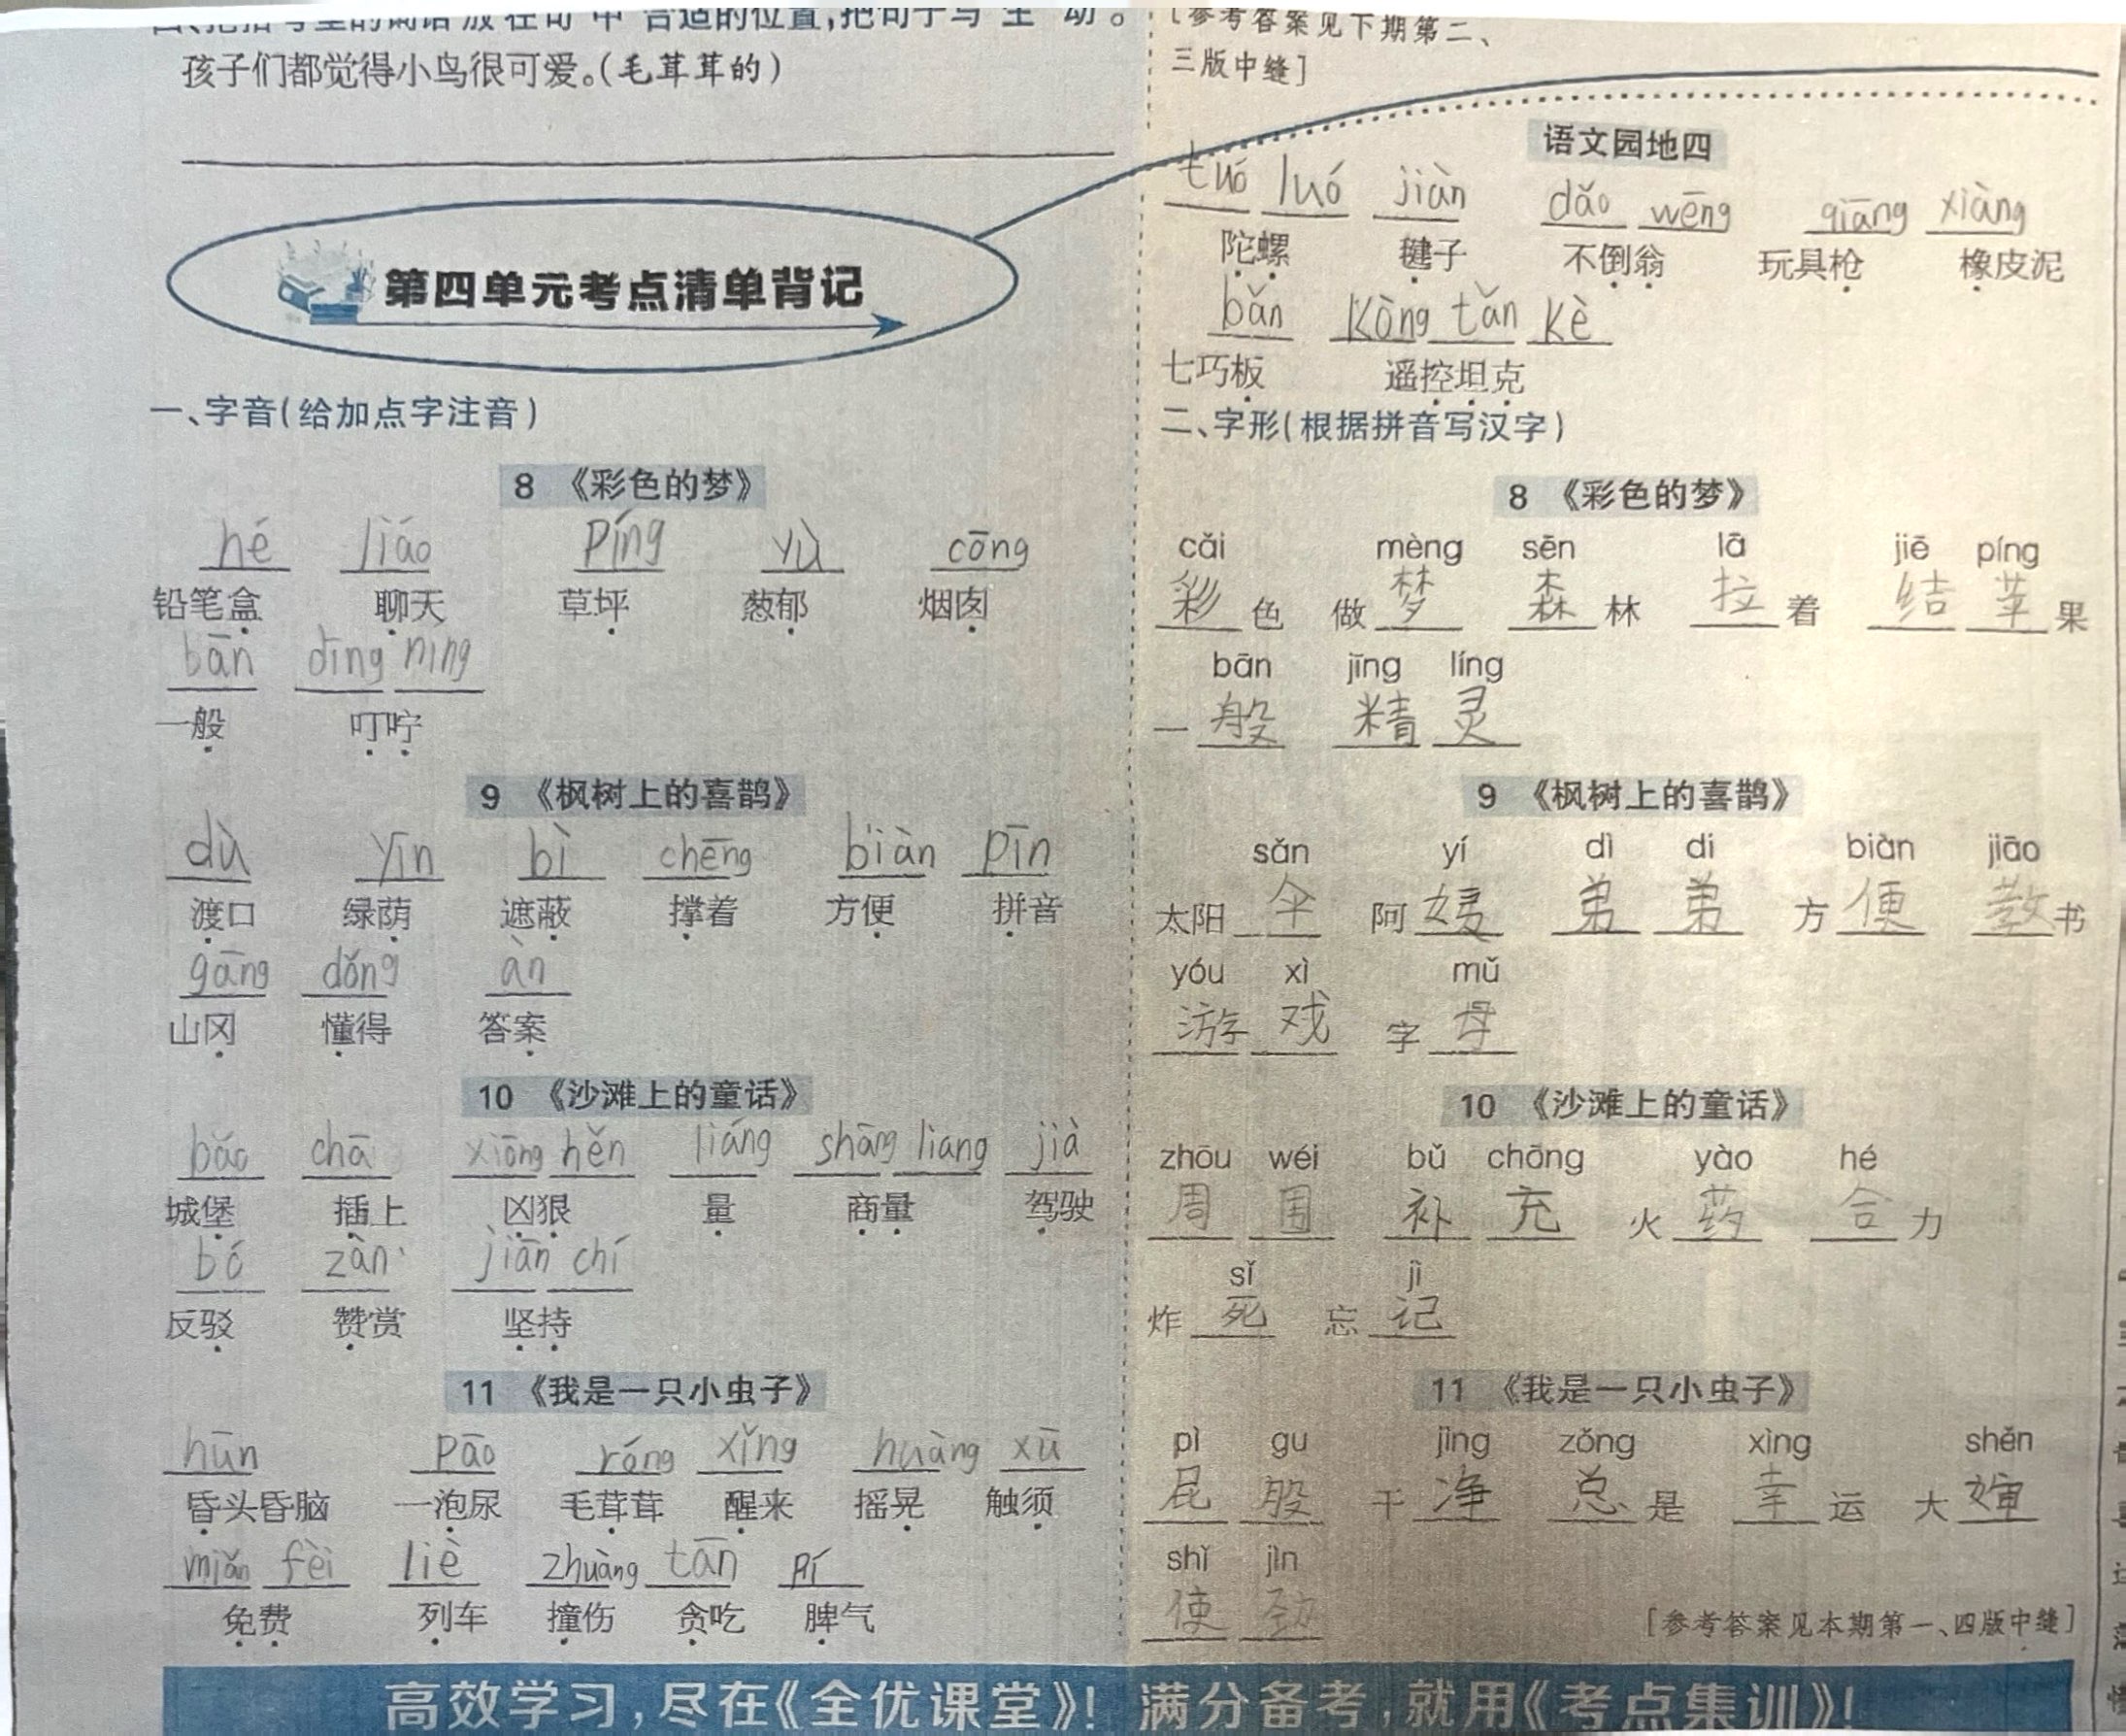 四、把括号里的词语放在句中合适的位置,把句子写生动。
孩子们都觉得小鸟很可爱。(毛茸茸的)
第四单元考点清单背记
一、字音(给加点字注音)
8 《彩色的梦》
hé liáo píng yù cōng
铅笔盒 聊天 草坪 葱郁 烟囱
bān dīng níng
一般 叮咛
9 《枫树上的喜鹊》
dù yīn bì chēng biàn pīn
渡口 绿荫 遮蔽 撑着 方便 拼音
gāng dǒng àn
山冈 懂得 答案
10 《沙滩上的童话》
bǎo chā xiōng hěn liáng shāng liang jià
城堡 插上 凶狠 量 商量 驾驶
bó zàn jiān chí
反驳 赞赏 坚持
11 《我是一只小虫子》
hūn pāo róng xǐng huàng xū
昏头昏脑 一泡尿 毛茸茸 醒来 摇晃 触须
miǎn fèi liè zhuàng tān pí
免费 列车 撞伤 贪吃 脾气
[参考答案见下期第二、
三版中缝]
语文园地四
tuó luó jiàn dǎo wēng qiāng xiàng
陀螺 毽子 不倒翁 玩具枪 橡皮泥
bǎn kòng tǎn kè
七巧板 遥控坦克
二、字形(根据拼音写汉字)
8 《彩色的梦》
cǎi mèng sēn lā jiē píng
彩色 做梦 森林 拉着 结苹果
bān jīng líng
一般 精灵
9 《枫树上的喜鹊》
sǎn yí dì di biàn jiāo
太阳伞 阿姨 弟弟 方便 教书
yóu xì mǔ
游戏 字母
10 《沙滩上的童话》
zhōu wéi bǔ chōng yào hé
周围 补充 火药 合力
sǐ jì
炸死 忘记
11 《我是一只小虫子》
pì gu jìng zǒng xìng shěn
屁股 干净 总是 幸运 大婶
shǐ jìn
使劲
[参考答案见本期第一、四版中缝]
高效学习,尽在《全优课堂》! 满分备考,就用《考点集训》!